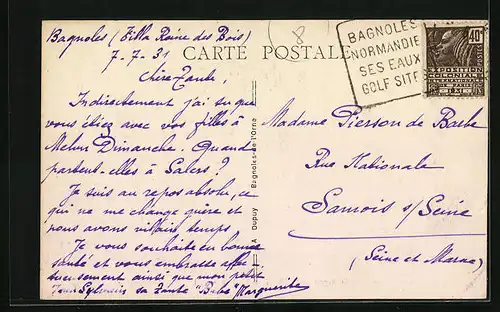 Bagnoles (Villa Reine des Bois)
7-7-31
CARTE POSTALE
8
BAGNOLES
NORMANDIE
SES EAUX
GOLF SITE
40c
POSTES
EXPOSITION
COLONIALE
INTERNATIONALE
PARIS
1931
Chère Tante,
Indirectement j'ai su que
vous étiez avec vos filles à
Melun Dimanche. Quand
partent-elles à Salers ?
Je suis au repos absolu, ce
qui ne me change guère et
nous avons vilain temps
Je vous souhaite en bonne
santé et vous embrasse affec-
tueusement ainsi que mon petit
Jean Sylvain sa Tante "Baba" Marguerite
Dupuy Bagnoles-de l'Orne
Madame Pierson de Barbe
Rue Nationale
Samois s/Seine
(Seine et Marne)